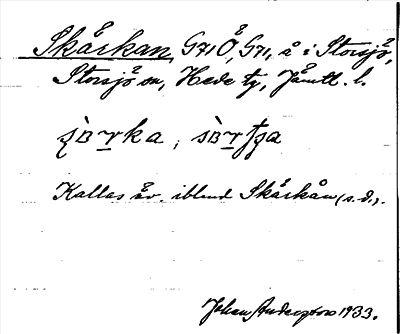 Skärkan, G71Ö, G71, å i Storsjö,
Storsjö sn, Hede tg, Jämtl. l.
Kallas äv. ibland Skärkån (s.d.).
Johan Anderzborn 1933.